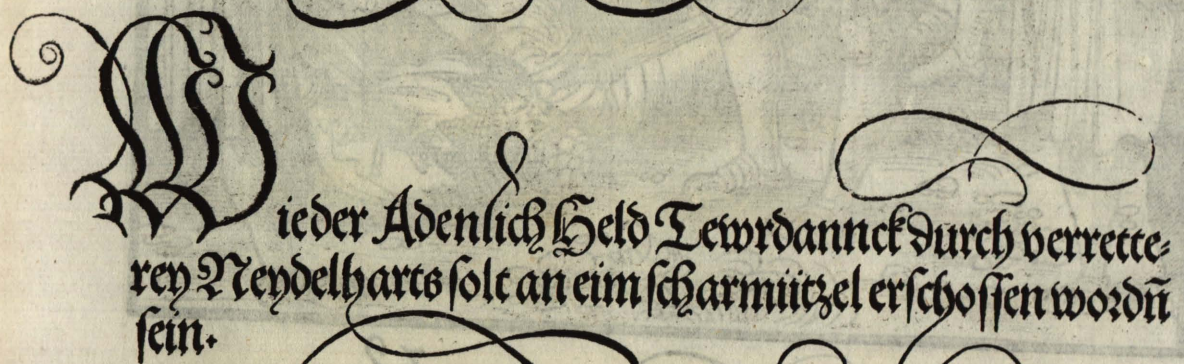 Wieder Adenlich Held Tewrdannck durch verrette⸗
rey Neydelharts solt an eim scharmützel erschossen wordn̄
sein.